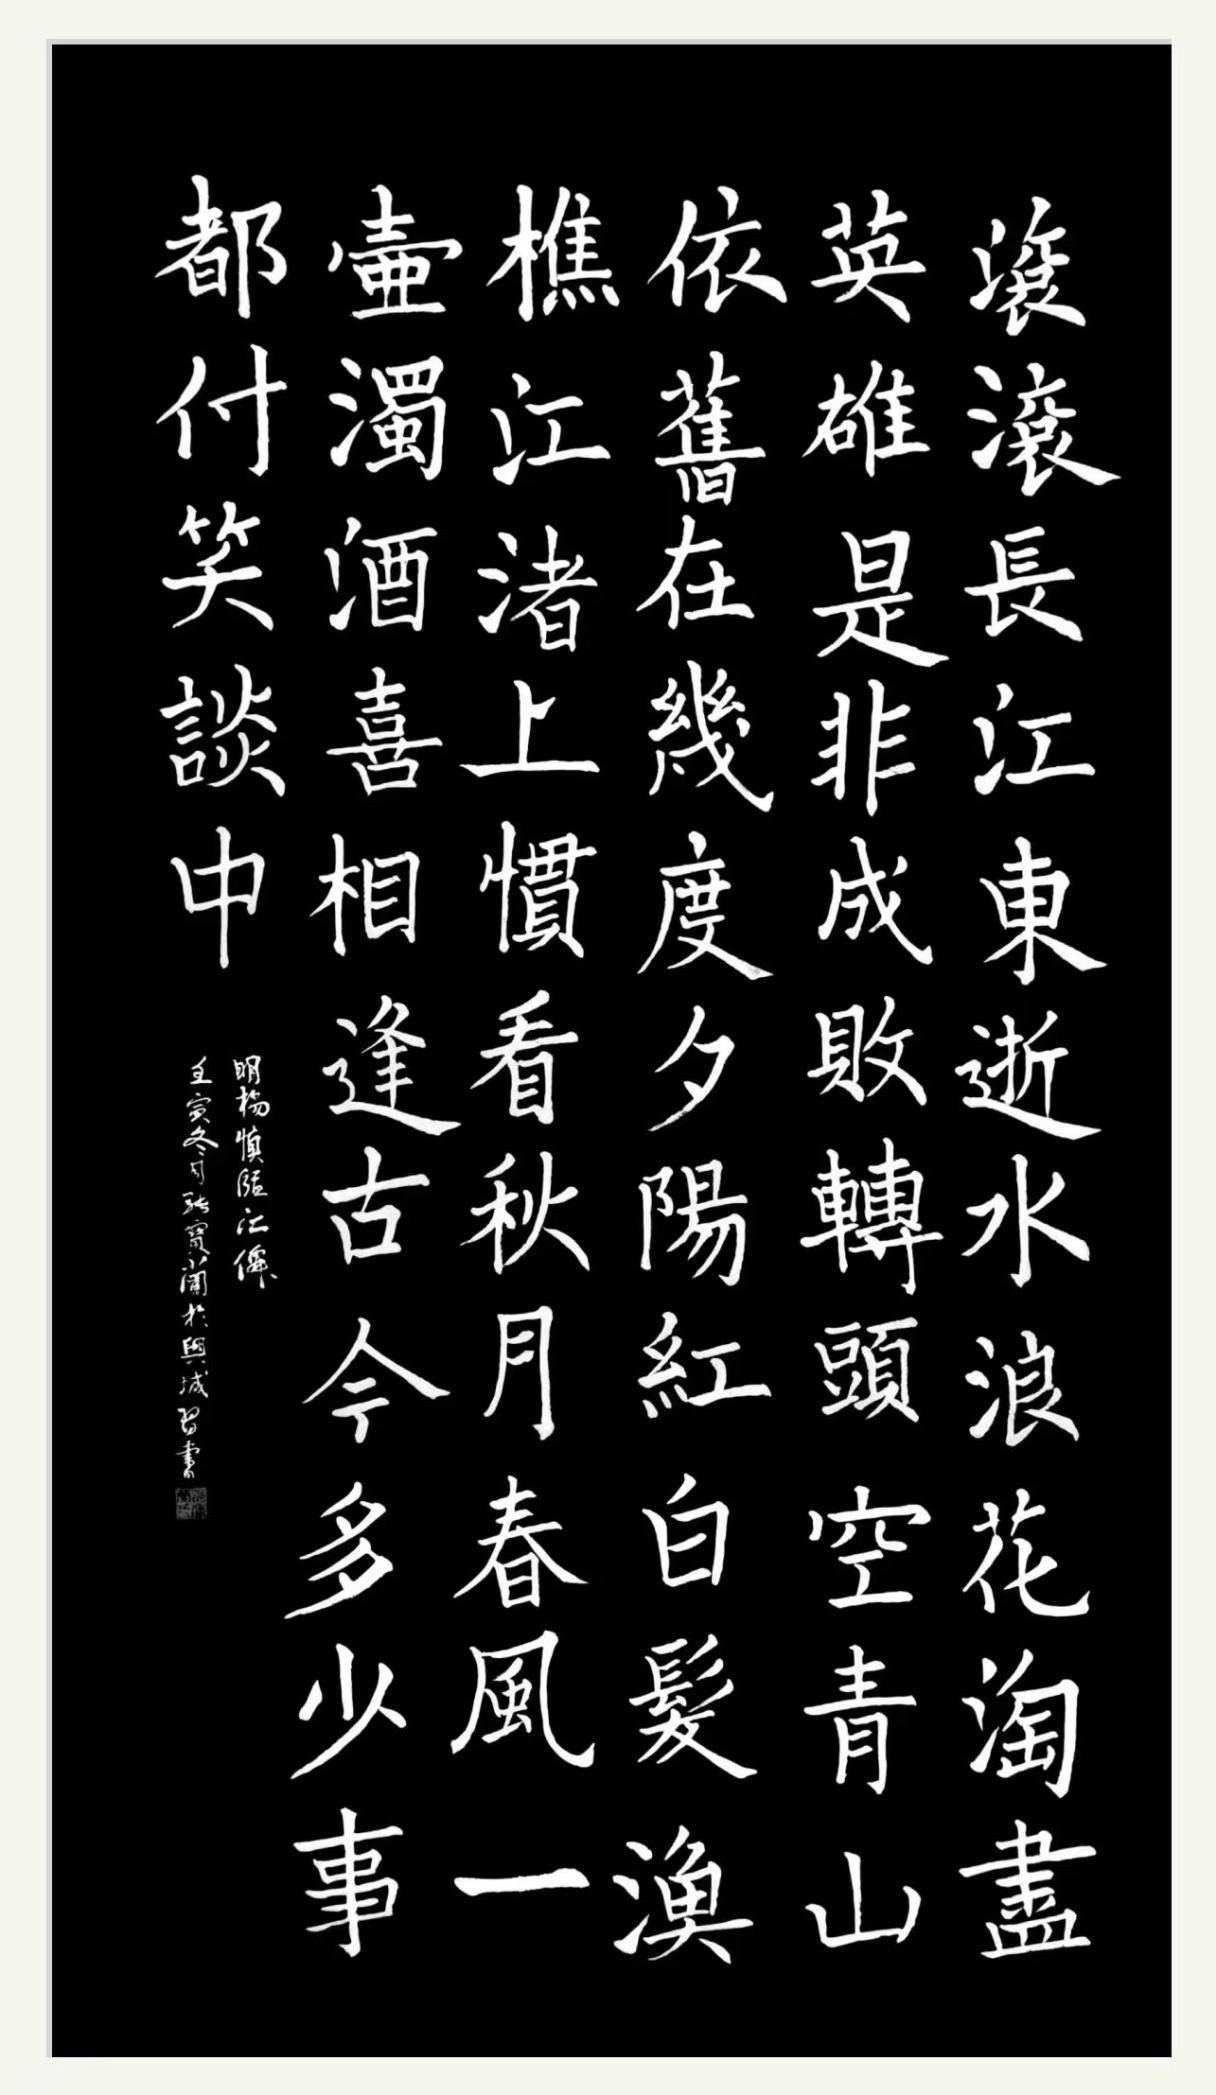 滾滾長江東逝水浪花淘盡
英雄是非成敗轉頭空青山
依舊在幾度夕陽紅白髮漁
樵江渚上慣看秋月春風一
壷濁酒喜相逢古今多少事
都付笑談中
明楊慎臨江僊
壬寅冬月張寶瀾於興城習書